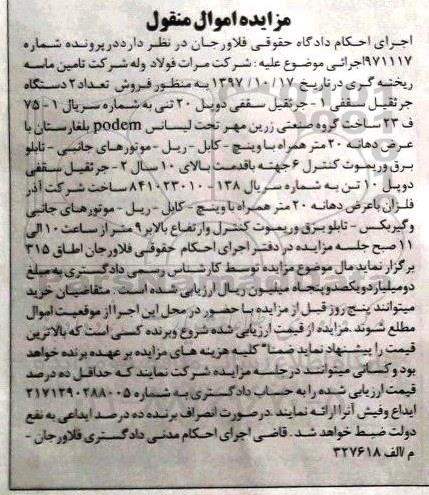 مزایده اموال منقول
اجرای احکام دادگاه حقوقی فلاورجان در نظر دارد در پرونده شماره
۹۷۱۱۱۷اجرائی موضوع علیه : شرکت مرات فولاد وله شرکت تامین ماسه
ریخته گری در تاریخ ۱۷ / ۱۰ / ۱۳۹۷ به منظور فروش تعداد ۲ دستگاه
جرثقیل سقفی ۱ - جرثقیل سقفی دوپل ۲۰ تنی به شماره سریال ۱ - ۷۵
ف ۲۳ ساخت گروه صنعتی زرین مهر تحت لیسانس podem بلغارستان با
عرض دهانه ۲۰ متر همراه با وینچ - کابل - ریل - موتورهای جانبی - تابلو
برق و ریموت کنترل ۶ جهته باقدمت بالای ۱۰ سال ۲ - جرثقیل سقفی
دوپل ۱۰ تن به شماره سریال ۱۳۸ - ۸۴۱۰۲۳۰۱۰ ساخت شرکت آذر
فلزان باعرض دهانه ۲۰ متر همراه با وینچ - کابل - ریل - موتورهای جانبی
وگیربکس - تابلو برق و ریموت کنترل وارتفاع بالابر ۹ متر از ساعت ۱۰ الی
۱۱ صبح جلسه مزایده در دفتر اجرای احکام حقوقی فلاورجان اطاق ۳۱۵
برگزار نماید مال موضوع مزایده توسط کارشناس رسمی دادگستری به مبلغ
دومیلیارد و یکصدوپنجاه میلیون ریال ارزیابی شده است . متقاضیان خرید
میتوانند پنج روز قبل از مزایده با حضور در محل این اجرا از موقعیت اموال
مطلع شوند .مزایده از قیمت ارزیابی شده شروع وبرنده کسی است که بالاترین
قیمت را پیشنهاد نماید ضمنا" کلیه هزینه های مزایده بر عهده برنده خواهد
بود وکسانی میتوانند در جلسه مزایده شرکت نمایند که حداقل ده درصد
قیمت ارزیابی شده را به حساب دادگستری به شماره ۲۱۷۱۲۹۰۲۸۸۰۰۵
ایداع وفیش آنرا ارائه نمایند .درصورت انصراف برنده ده درصد ایداعی به نفع
دولت ضبط خواهد شد . قاضی اجرای احکام مدنی دادگستری فلاورجان -
م /الف ۳۲۷۶۱۸